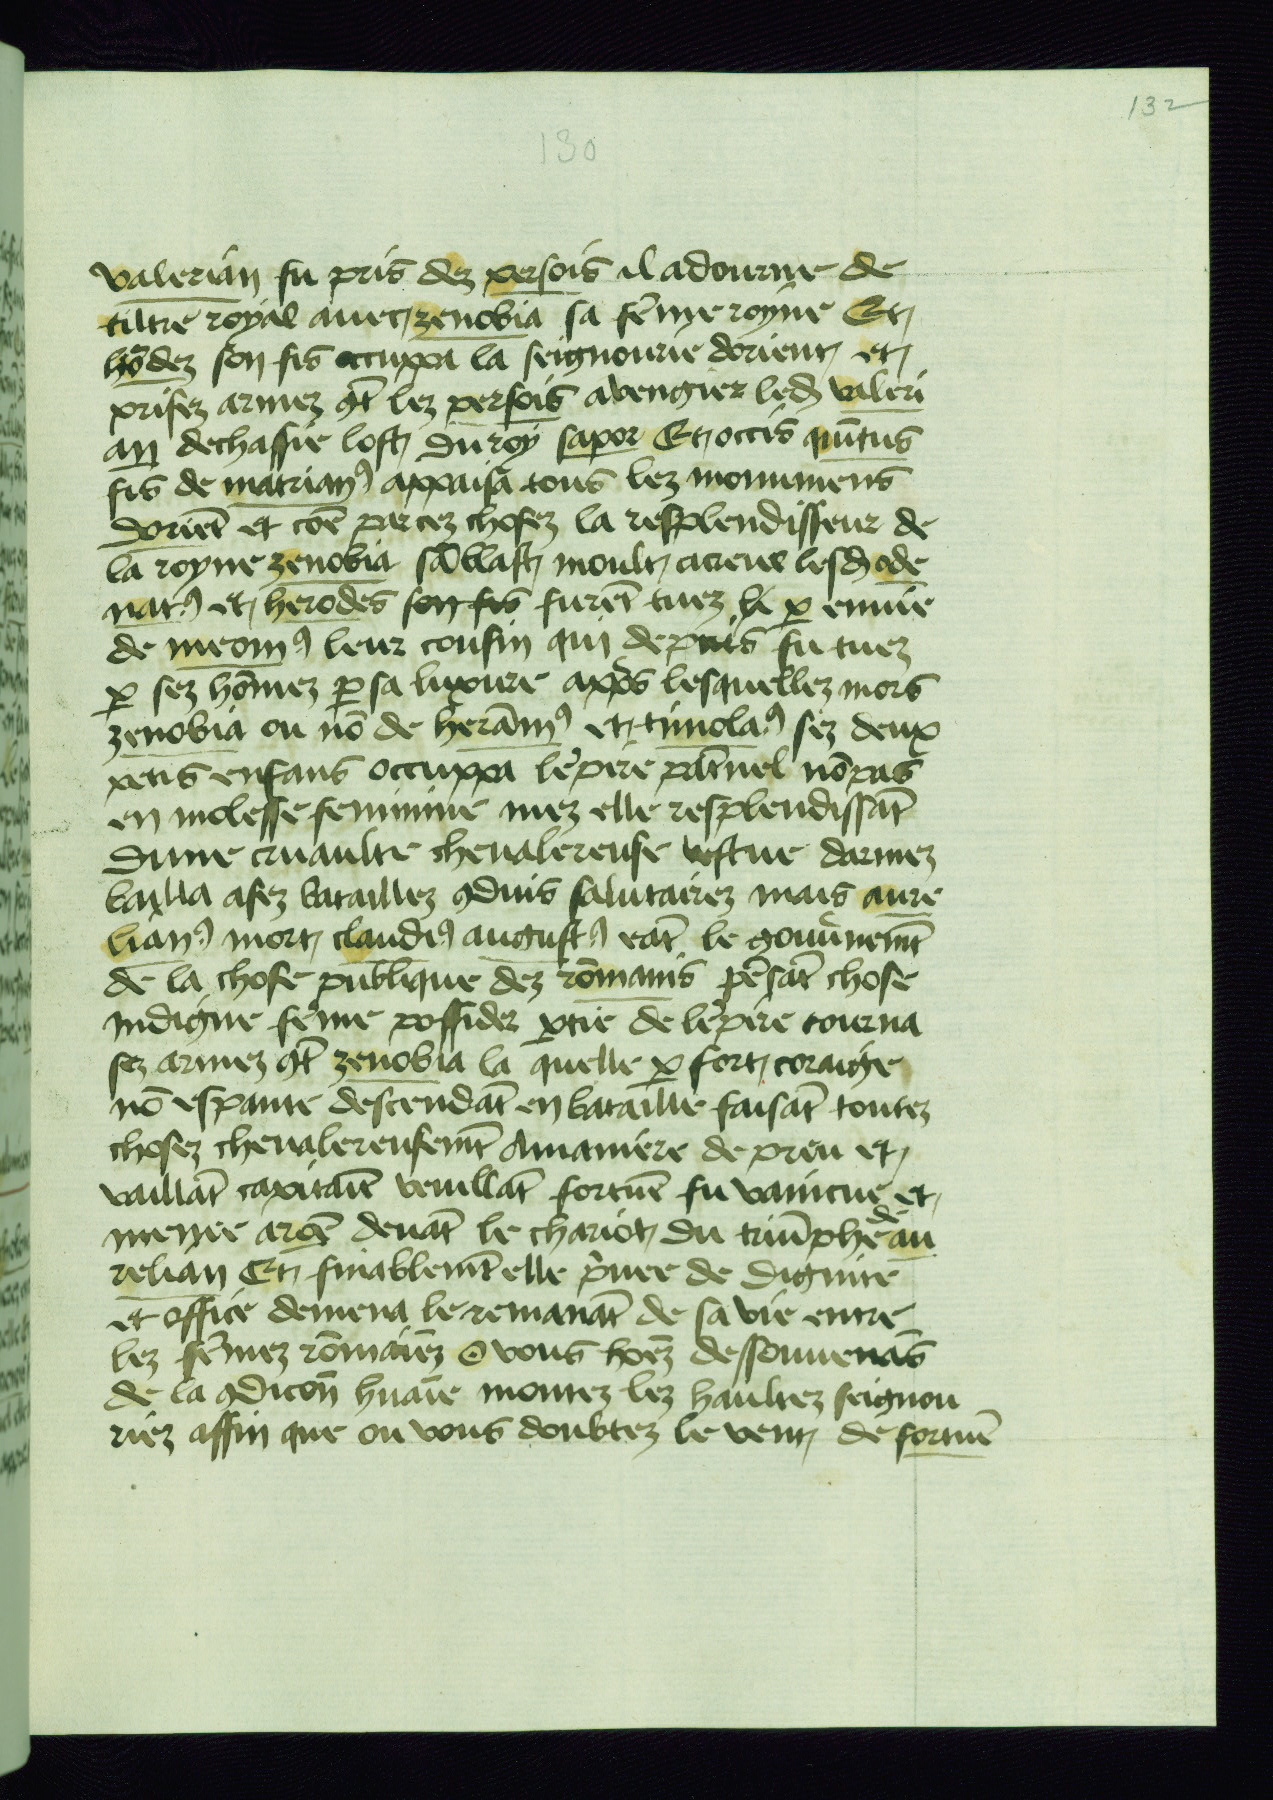 132
130
valerian fu pris dez persois il adourne de
tiltre royal avec zenobia sa fēme royne Et
hōdez son fis occuppa la seignourie dorient et
prisez armez 9t̄ lez persois a vengier led valeri
an dechassie lost du roy sapor Et occis quītus
fis de matrian9 appaisa tous lez monumens
doriēt et cōe par cez chosez la resplendisseur de
la royne zenobia moult acreue lesd ode
nat9 et herodes son fis furēt tuez p envie
de meoni9 leur cousin qui depuis fu tuez
p sez hōmez p sa luxure appēs lesquellez mors
zenobia ou nō de herām9 et timola9 sez deux
petis enfans occuppa lēpire pat̄nel nō pas
en molesse feminine mez elle resplendissāt
dune cruaulte chevalereuse vestue darmez
bailla asez bataillez 9duis salutairez mais aure
lian9 mort claudi9 august9 eāt le gouvnemēt
de la chose publique dez rōmanis pēsāt chose
indigne fēme possider ptie de lēpire tourna
sez armez 9t̄ zenobia la quelle p fort coraige
nō espante descendāt en bataille faisāt toutez
chosez chevalereusemēt A maniere de preu et
vaillāt capitaīe veuillāt fortuē fu vaincue et
menee devāt le chariot du triūphe de au
relian Et finablemēt elle pvee de dignite
et office demena le remanāt de sa vie entre
lez fēmez rōmaiēz O vous hōēz dessouvenās
de la 9dicoñ huaīe montez lez haultez seignou
riez affin que ou vous doubtez le vent de fortuē